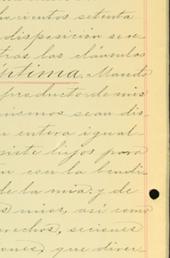 cientos setenta
disposición se e
tras las cláusulas
éptima. Mando
producto de mis
mismos sean dis
n entera igual
siete hijos para
n con la bendi
de la mia: y de
s mios, así como
rechos, acciones
ones, que diver